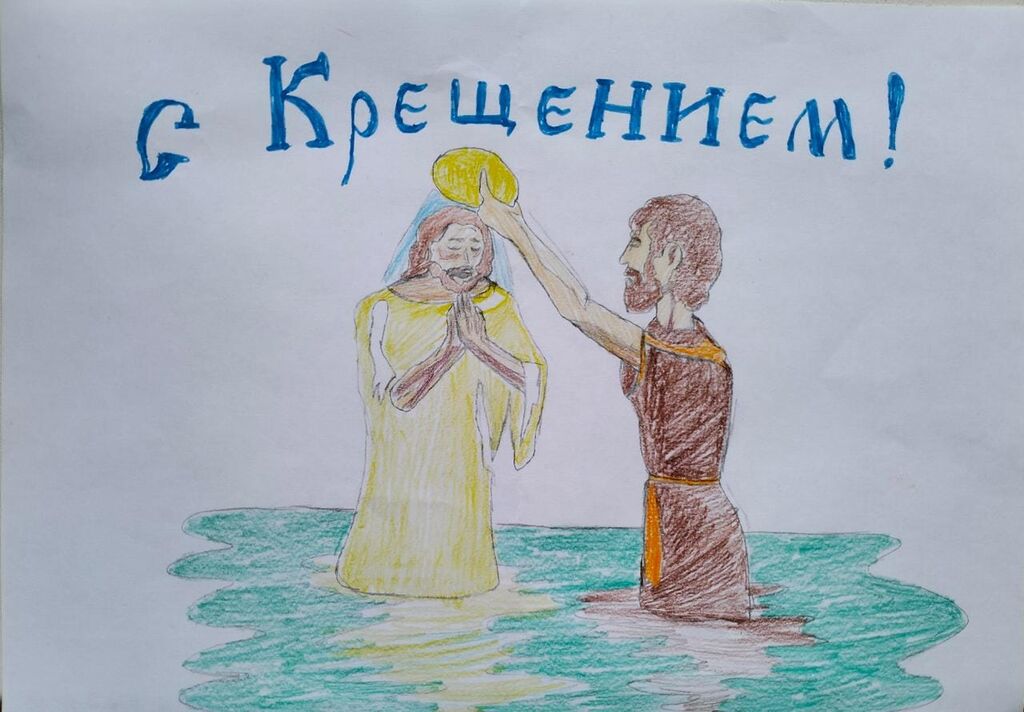 с Крещением!